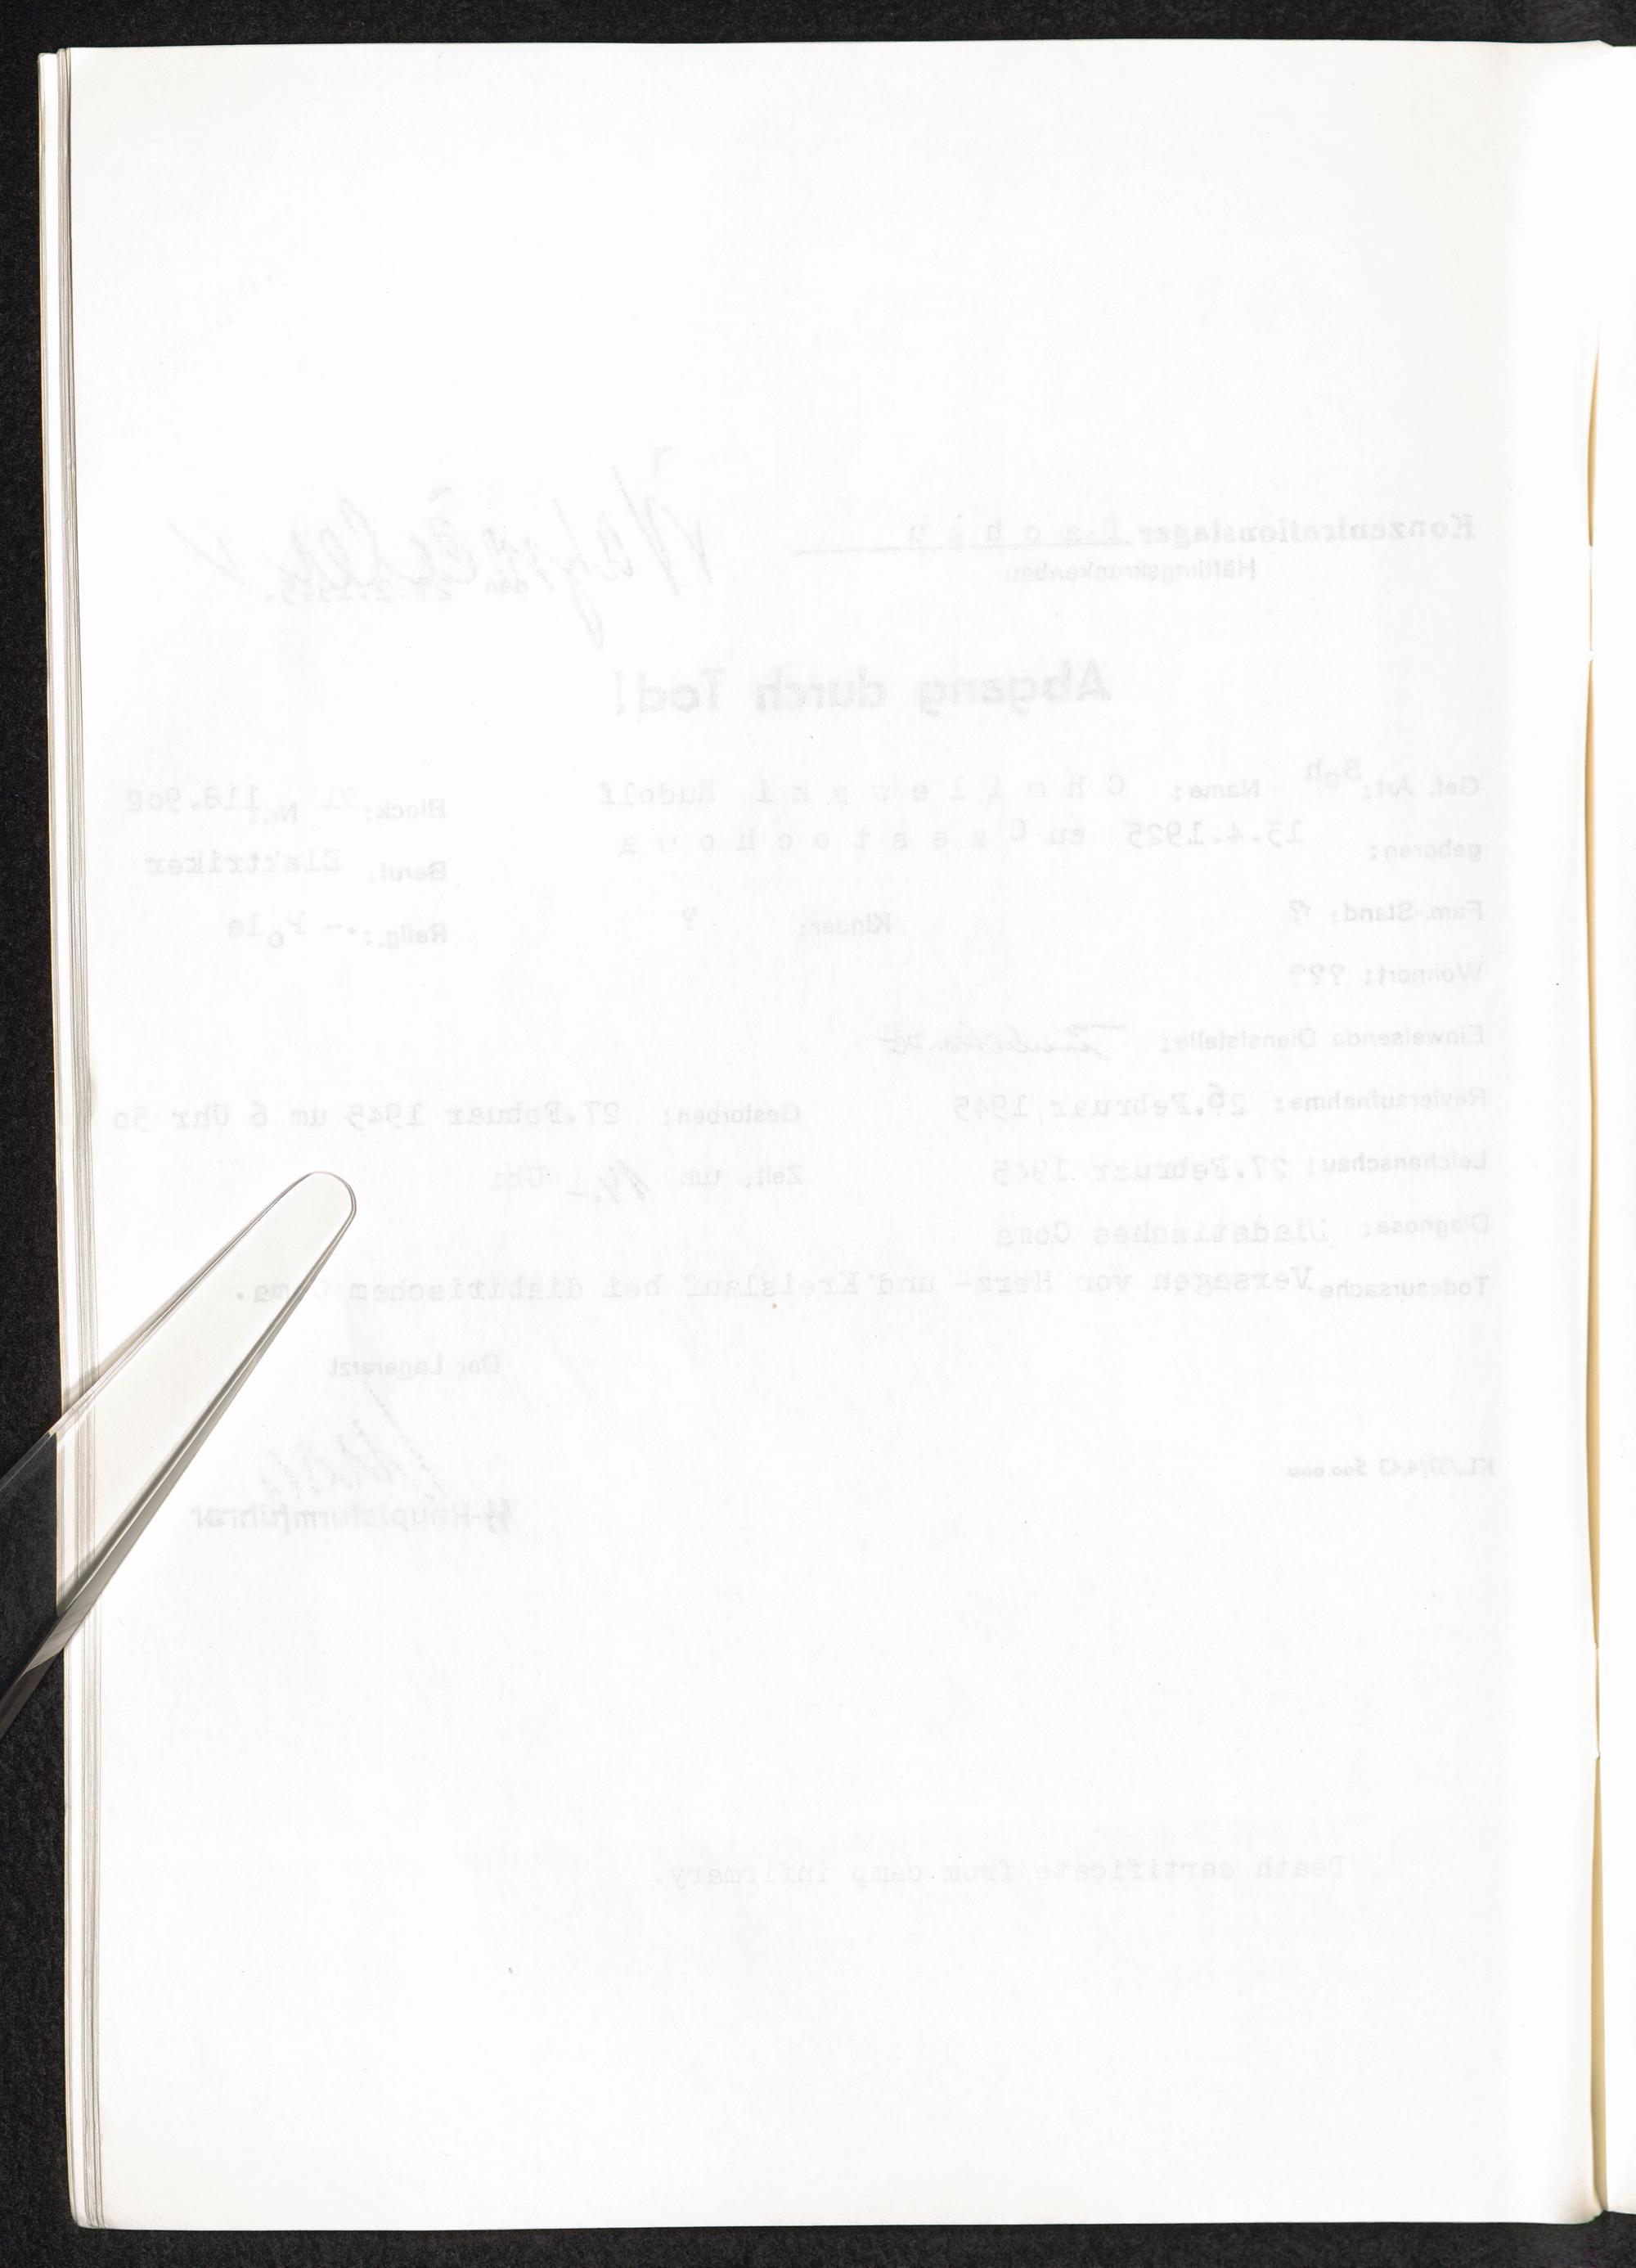 Konzentrationslager D a c h a u
Häftlingskrankenbau
den 27.2.1945.
Abgang durch Tod!
Gef. Art: Sch Name: C h m i l e w s k i Rudolf Block: 21 Nr. 118.902
geboren: 13.4.1925 zu C z e s t o c h o w a Beruf: Elektriker
Fam.-Stand: ? Kinder: ? Relig.: -- Pole
Wohnort: ???
Einweisende Dienststelle:
Revieraufnahme: 26.Februar 1945 Gestorben: 27.Febuar 1945 um 6 Uhr 50
Leichenschau: 27.Februar 1945 Zeit: um 14.- Uhr
Diagnose: Diadetisches Coma
Todesursache Versagen von Herz- und Kreislauf bei diabitischem Coma.
Der Lagerarzt
SS-Hauptsturmführer
KL/37/4.43 500.000
Death certificate from camp infirmary.